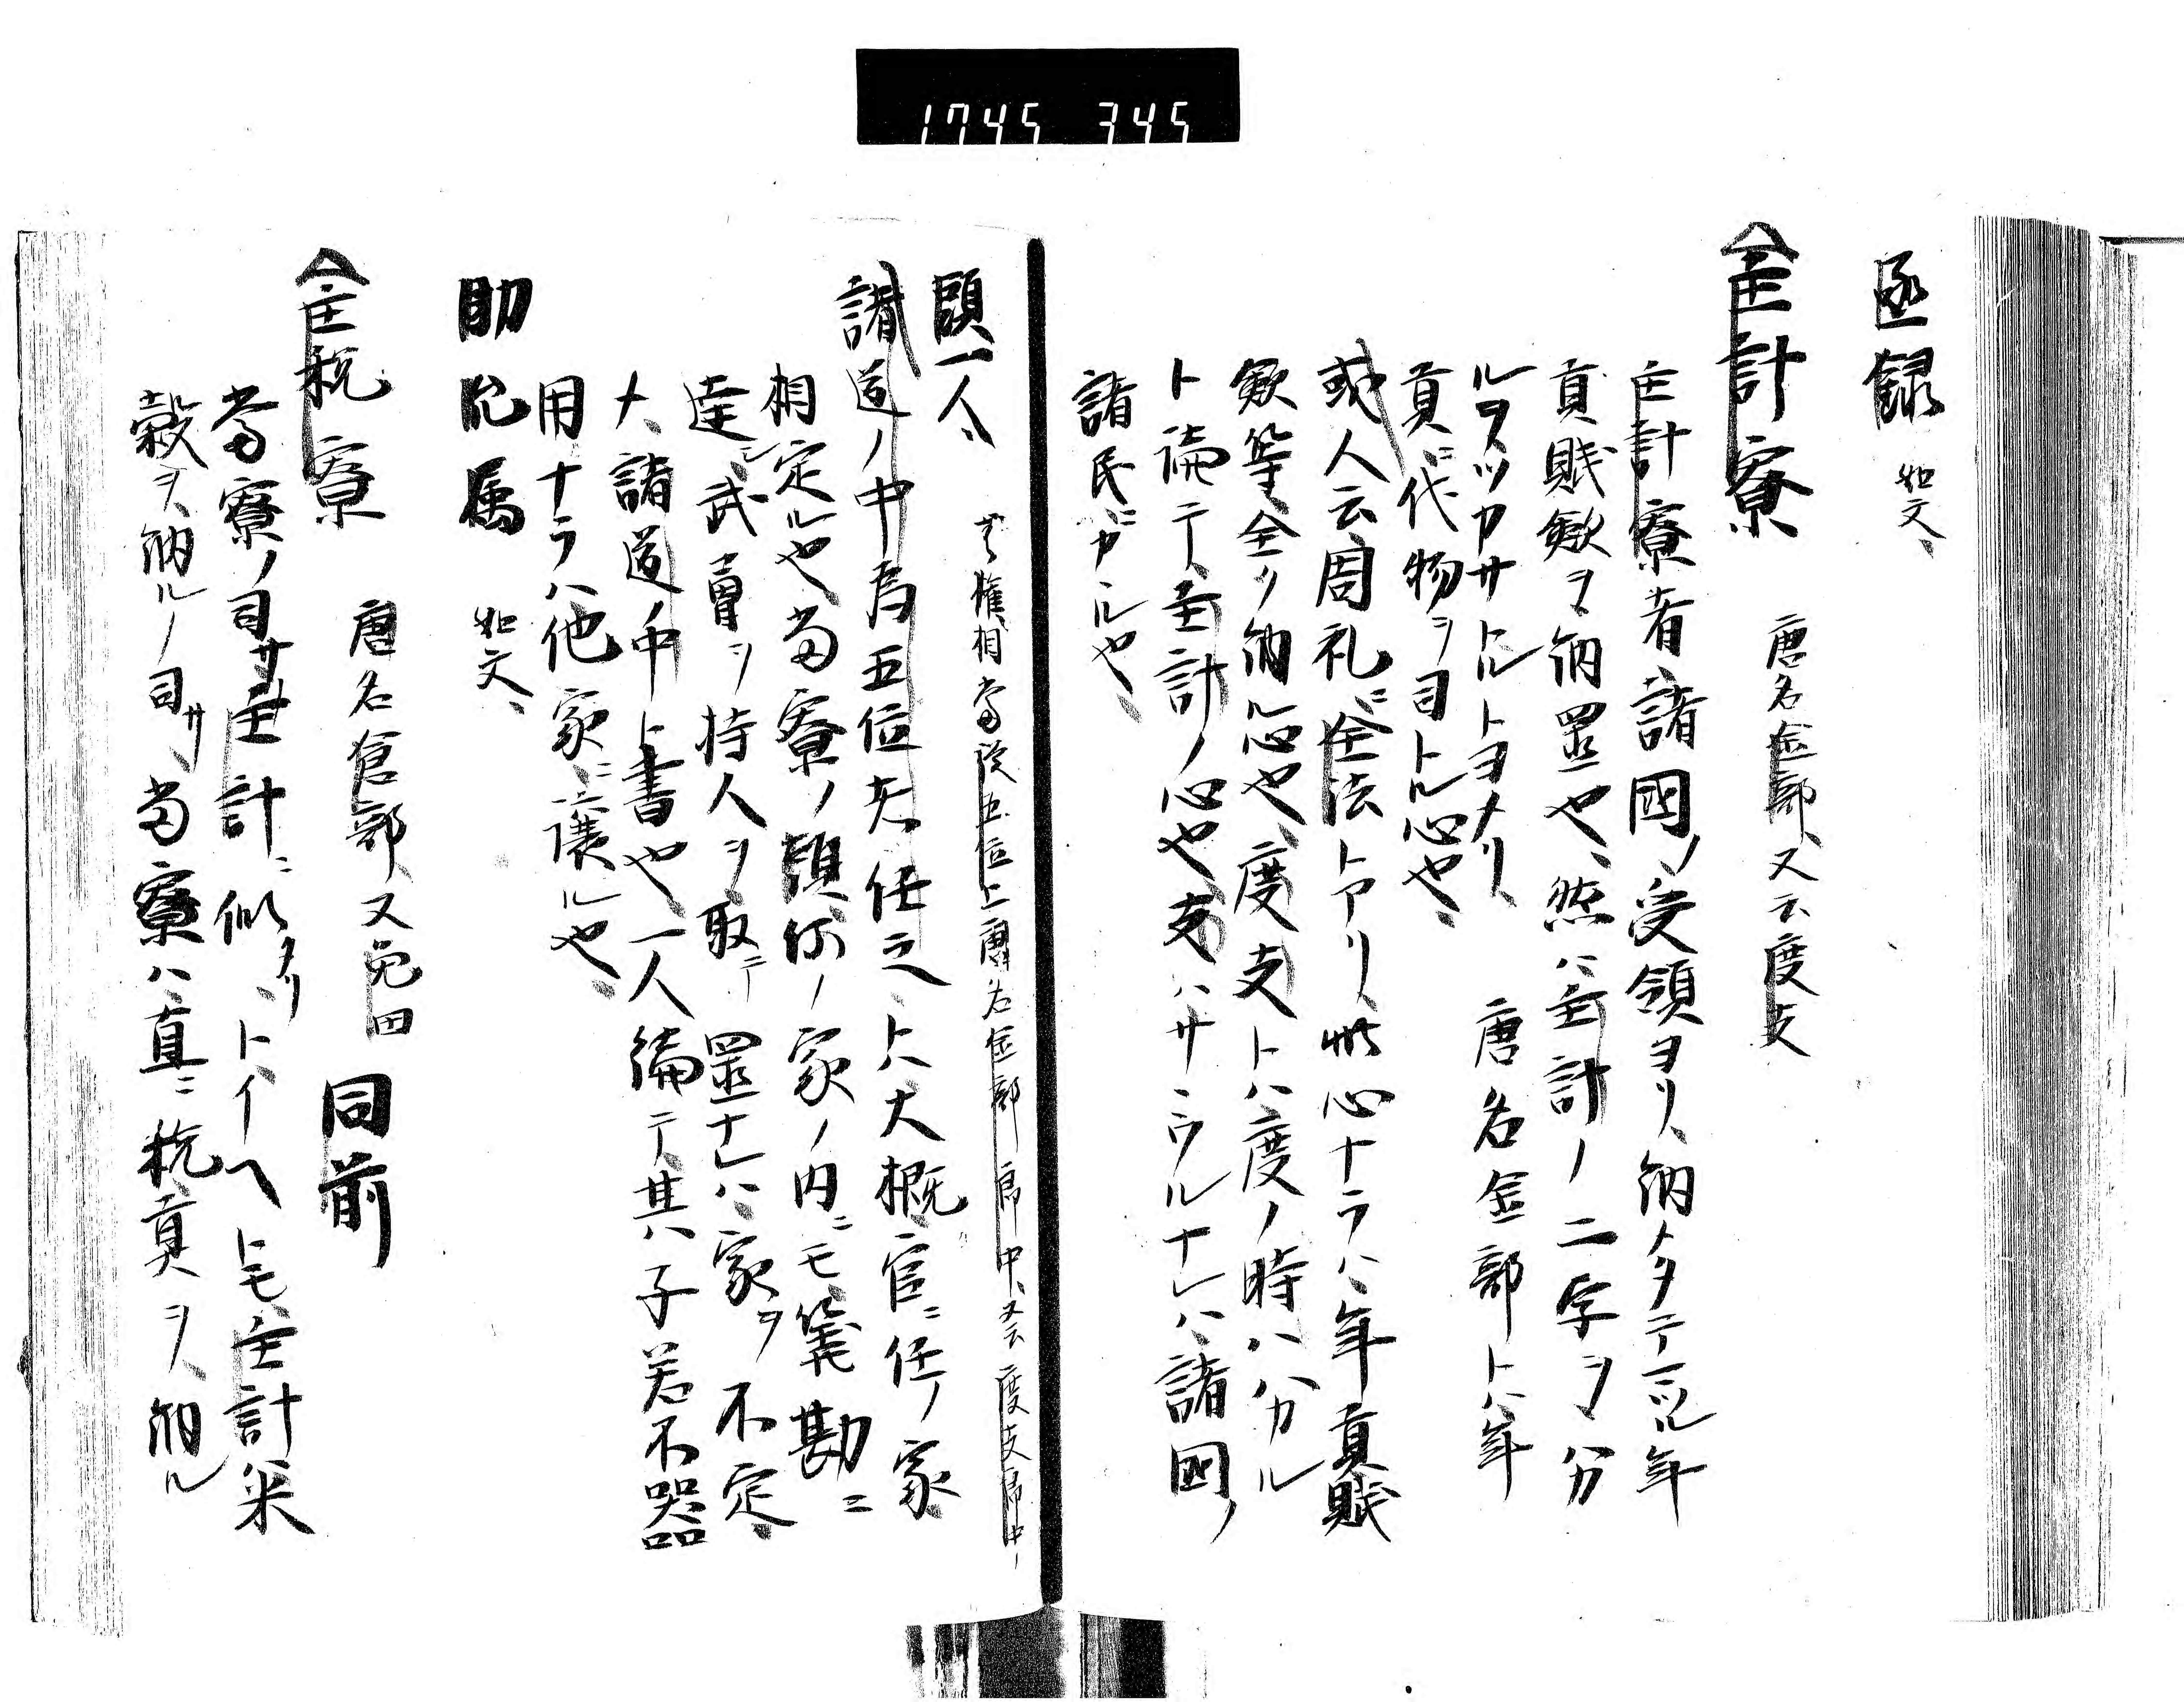 1745 345
丞録 如文、
主計寮 唐名金部、又云度支
主計寮者、諸國ノ受領ヨリ、納メタテマツル年
貢賦斂ヲ納置也、然ハ主計ノ二字ヲ分
ルヲツカサトルトヨメリ、 唐名金部トハ年
貢ニ代物ヲ司トル心也、
或人云、周礼ニ金法トアリ、此心ナラハ、年貢賦
斂等全ク納ル心也、度支トハ度ノ時ハ分カル
ト論テ、主計ノ心也、支ハサヽウルナレハ、諸國ノ
諸民ニカヽル也、
頭一人、 有権相當従五位上唐名金部郎中、又云度支郎中、
諸道ノ中為五位者任之、ト大概官ニ任ノ家
相定ル也、當寮ノ頭ハ、家ノ内ニモ算勘ニ
達、武曹ヲ持人ヲ取テ置ナレハ、家ヲ不定、
大諸道中ト書也、一人編テ其ノ子若不器
用ナラハ、他家ニ譲ル也、
助允属 如文、
主税寮 唐名倉部、又兎田 同前
當寮ノ司サ主計ニ似タリ、トイヘトモ、主計米
穀ヲ納ルノ司サ、當寮ハ直ニ税貢ヲ納ル